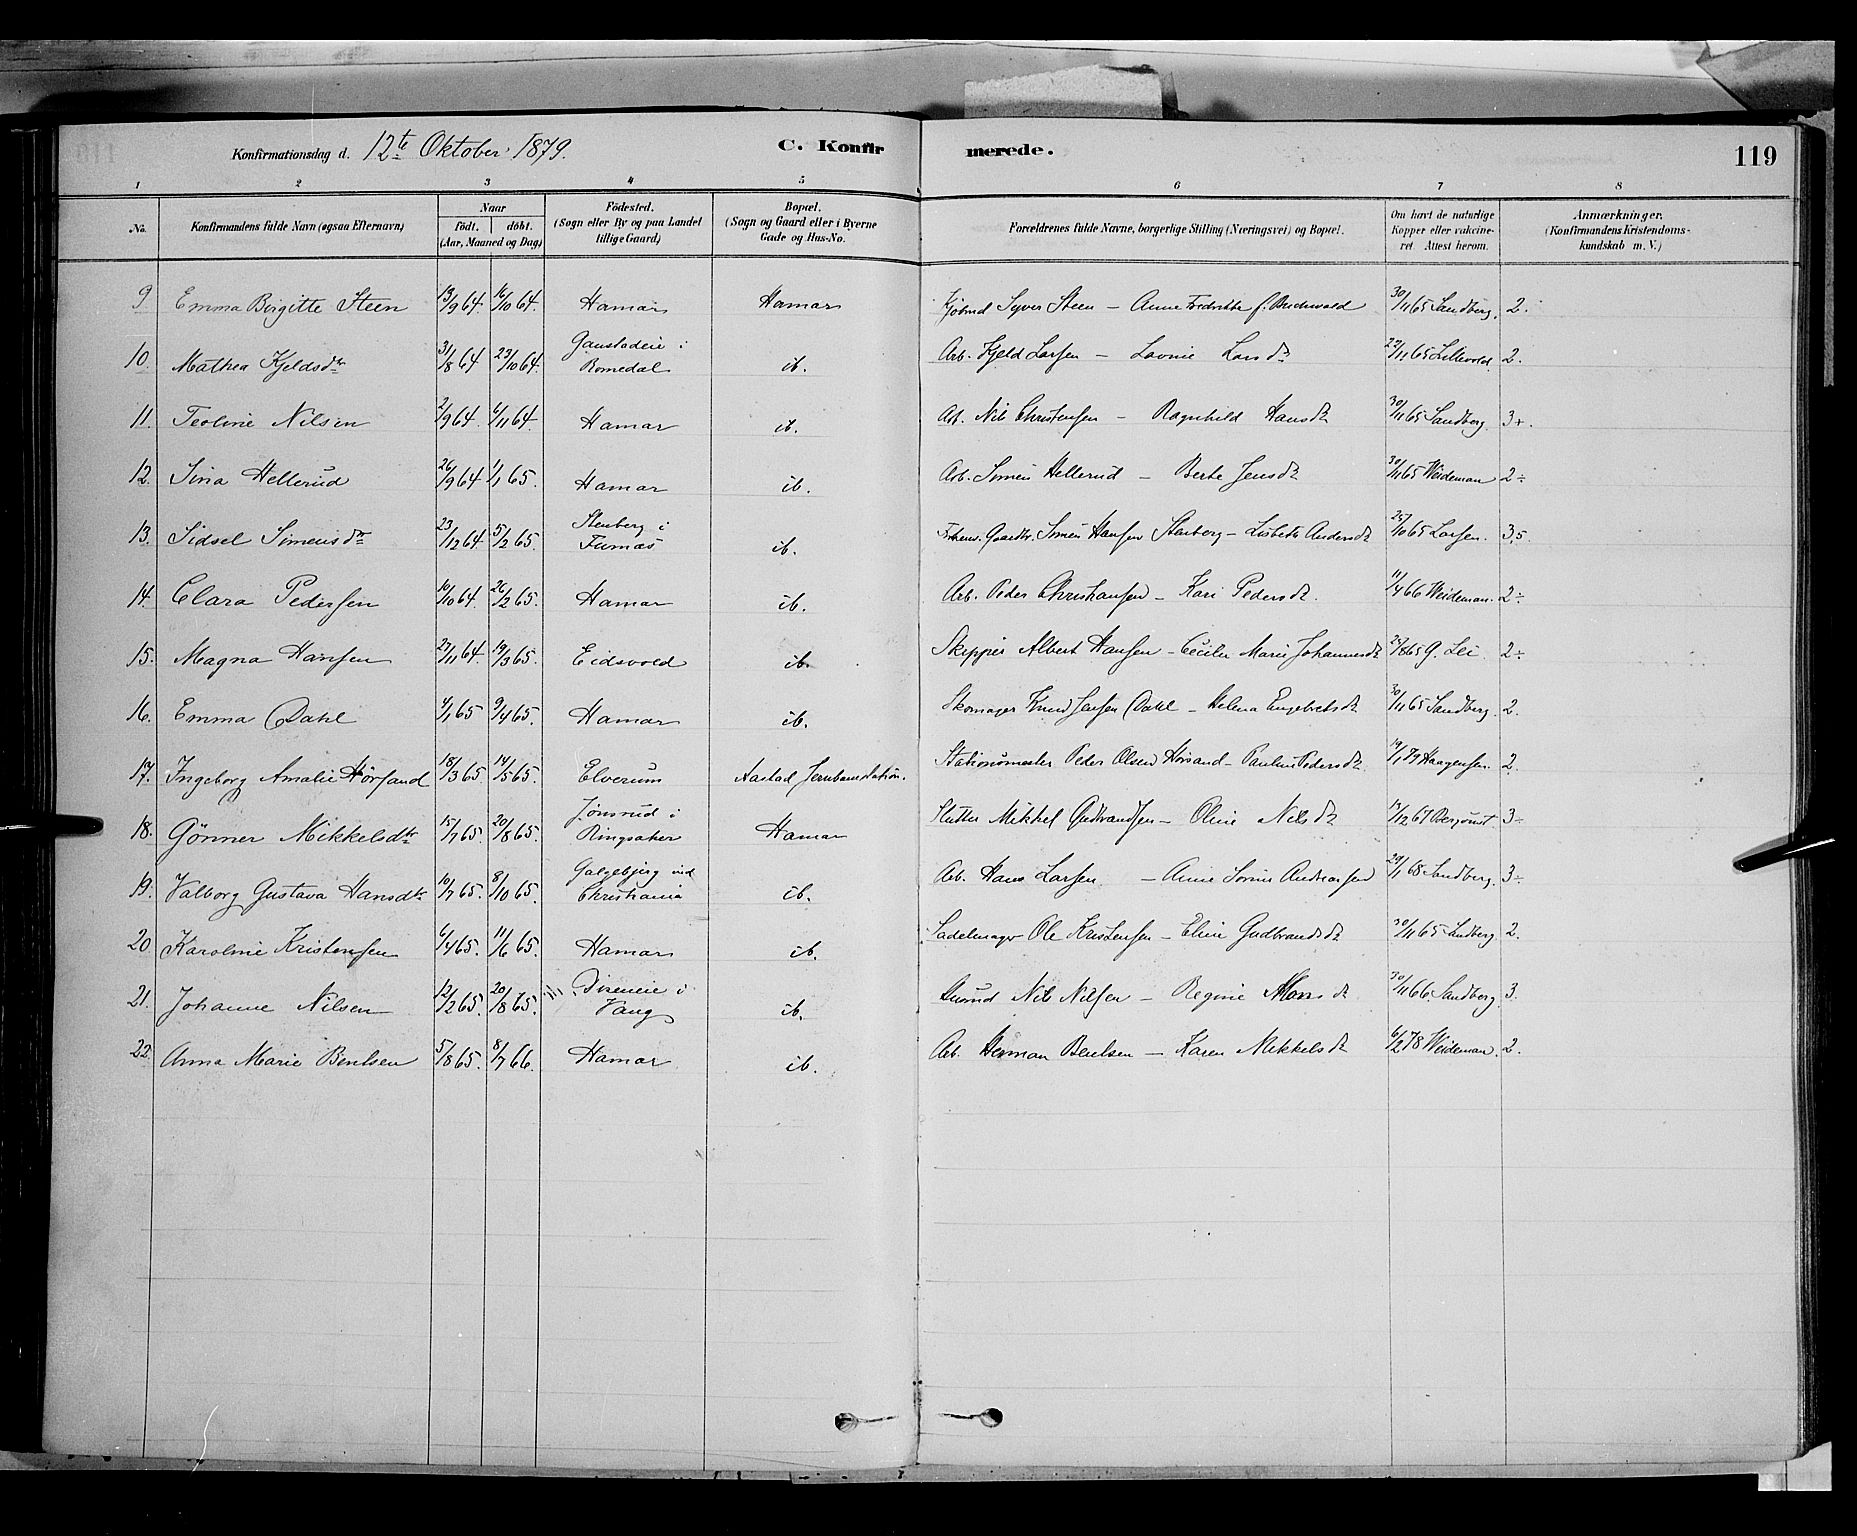 Konfirmationsdag d. 12te Oktober 1879. C. Konfirmerede. 119
1 2 3 4 5 6 7 8
No. Konfirmandens fulde Navn (ogsaa Efternavn) Naar födt. döbt. (Aar, Maaned og Dag) Födested. (Sogn eller By og paa Landet tillige Gaard) Bopæl. (Sogn og Gaard eller i Byerne Gade og Hus-No. Forældrenes fulde Navne, borgerlige Stilling (Næringsvei) og Bopæl. Om havt de naturlige Kopper eller vakcineret. Attest herom. Anmærkninger. (Konfirmandens Kristendomskundskab m. V.)
9 Emma Birgitte Steen 13/9 64. 16/10 64. Hamar Hamar Syver Steen – Anne Fredrikke f. 30/11 65 Sandberg. 2.
10. Mathea Kjeldsdtr 31/8 64 23/10 64. Gaustadeie i Romedal ib. Arb. Kjeld Larsen – Lovnie Larsdr 22/11 65 Lillevold 2.
11. Teoline Nilsen 2/9 64 6/11 64. Hamar ib. Arb. Nils Christensen – Ragnhild Hansdr 30/11 65 Sandberg. 3+.
12. Sina Hellerud 26/9 64 1/1 65. Hamar ib. Arb. Simen Hellerud – Berte Jensdr 30/11 65 Weideman 2÷
13. Sidsel Simensdr 23/12 64. 5/2 65. Stenberg i Furnæs ib. Simen Hansen Stenberg – Lisbeth Andersdr 25/10 65 Larsen. 3,5.
14. Clara Pedersen 10/10 64. 26/2 65. Hamar ib. Arb. Peder Christiansen – Kari Pedersdr. 11/4 66 Weideman. 2÷
15. Magna Hansen 27/11 64. 19/3 65. Eidsvold ib. Skipper Albert Hansen – Cecilie Marie Johannesdr 25/8 65 G. Lei. 2÷
16. Emma Dahl 4/1 65 9/4 65. Hamar ib. Skomager Knud Jensen Dahl – Helena Engebretsdr 30/11 65 Sandberg. 2.
17. Ingeborg Amalie Hörsand 18/3 65 14/5 65. Elverum Aastad Jernbanestation. Stationsmester Peder Olsen Hörsand – Pauline Pedersdr 19/1 79 Haagensen. 2.
18. Gönner Mikkelsdtr 15/7 65. 20/8 65. Jönsrud i Ringsaker Hamar Mikkel Gudbrandsen – Oline Nilsdr 3÷
19. Valborg Gustava Hansdtr 10/7 65. 8/10 65. Galgebjerg ved Christiania ib. Arb. Hans Larsen – Anne Sorine Andreasen 29/1 68 Sandberg. 3÷
20. Karoline Kristensen 6/4 65. 11/6 65. Hamar ib. Sadelmager Ole Kristensen – Eline Gudbrandsdr 30/11 65 Sandberg 2.
21. Johanne Nilsen 12/2 65. 20/8 65. Diseneie i Vang ib. Nils Nilsen – Regine Monsdr 30/11 66. Sandberg 3.
22. Anna Marie Bentsen 5/8 65. 8/7 66. Hamar ib. Arb. Herman Bentsen – Karen Mikkelsdr 6/2 78 Weideman. 2.